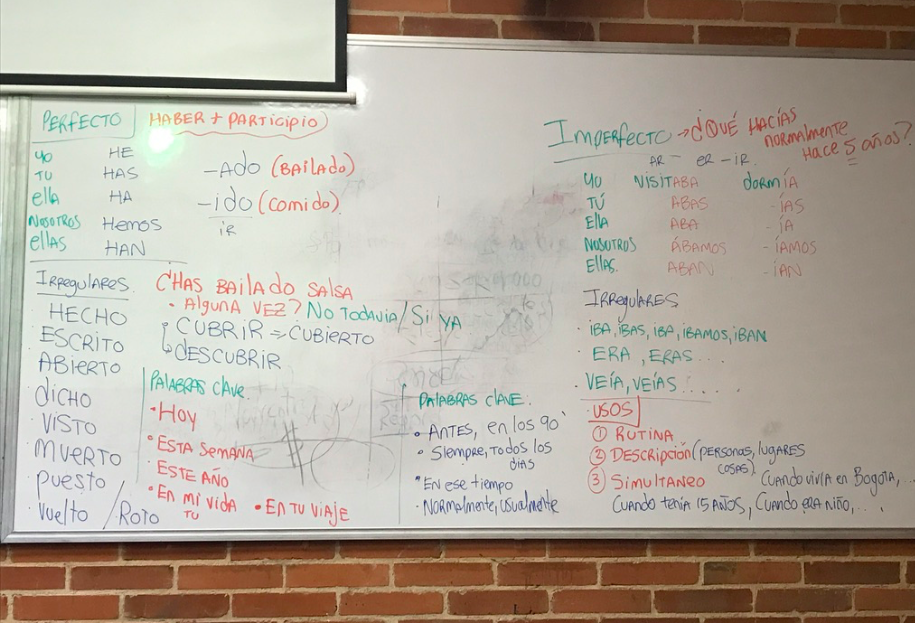 PERFECTO HABER + PARTICIPIO
yo HE
TU HAS
ella HA
NOSOTROS Hemos
ellas HAN
-ADO (BAILADO)
-ido (comido)
iR
IRREGULARES
HECHO
ESCRITO
ABIERTO
dicho
VISTO
MUERTO
puesto
vuelto / ROTO
¿HAS BAILADO SALSA
• Alguna VEZ? NO TODAVIA/Si YA
CUBRIR => CUBIERTO
DESCUBRIR
PALABRAS clave
• HOY
• ESTA SEMANA
• ESTE AÑO
• En mi vida
TU
• EN TU VIAJE
PALABRAS CLAVE:
• ANTES, en los 90'
• Siempre, TODOS LOS
dias
• EN ese tiempo
• Normalmente, usualmente
IMPERFECTO → ¿QUÉ HACÍAS
NORMALMENTE
Hace 5 años?
AR – eR – iR.
YO VISITABA dormÍA
TÚ ABAS - ÍAS
Ella ABA - ÍA
NOSOTROS ÁBAMOS - ÍAMOS
Ellas. ABAN - ÍAN
IRREGULARES
• iBA, iBAS, iBA, iBAMOS, iBAN
• ERA, ERAS...
• VEÍA, VEÍAS.....
USOS
① RUTINA
② DESCRIPCIÓN (personas, lugares
COSAS)
③ SIMULTANEO CUANDO VIVIA en BOGOTA,...
CUANDO TENÍA 15 AÑOS, CUANDO ERA NIÑO,...